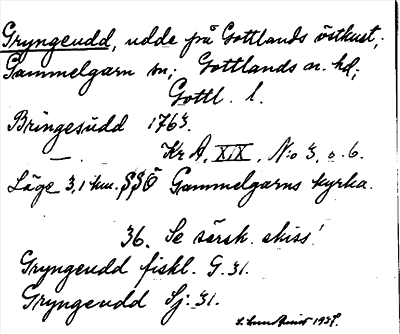 Gryngeudd, udde på Gottlands östkust,
Gammelgarn sn; Gottlands n. hd;
Gottl. l.
Bringesudd 1763.
— Kr A, XIX, No 3, o. 6.
Läge 3,1 km. SSÖ Gammelgarns kyrka.
36. Se särsk. skiss!
Gryngeudd fiskl. G. 31.
Gryngeudd Sj. 31.
1937.